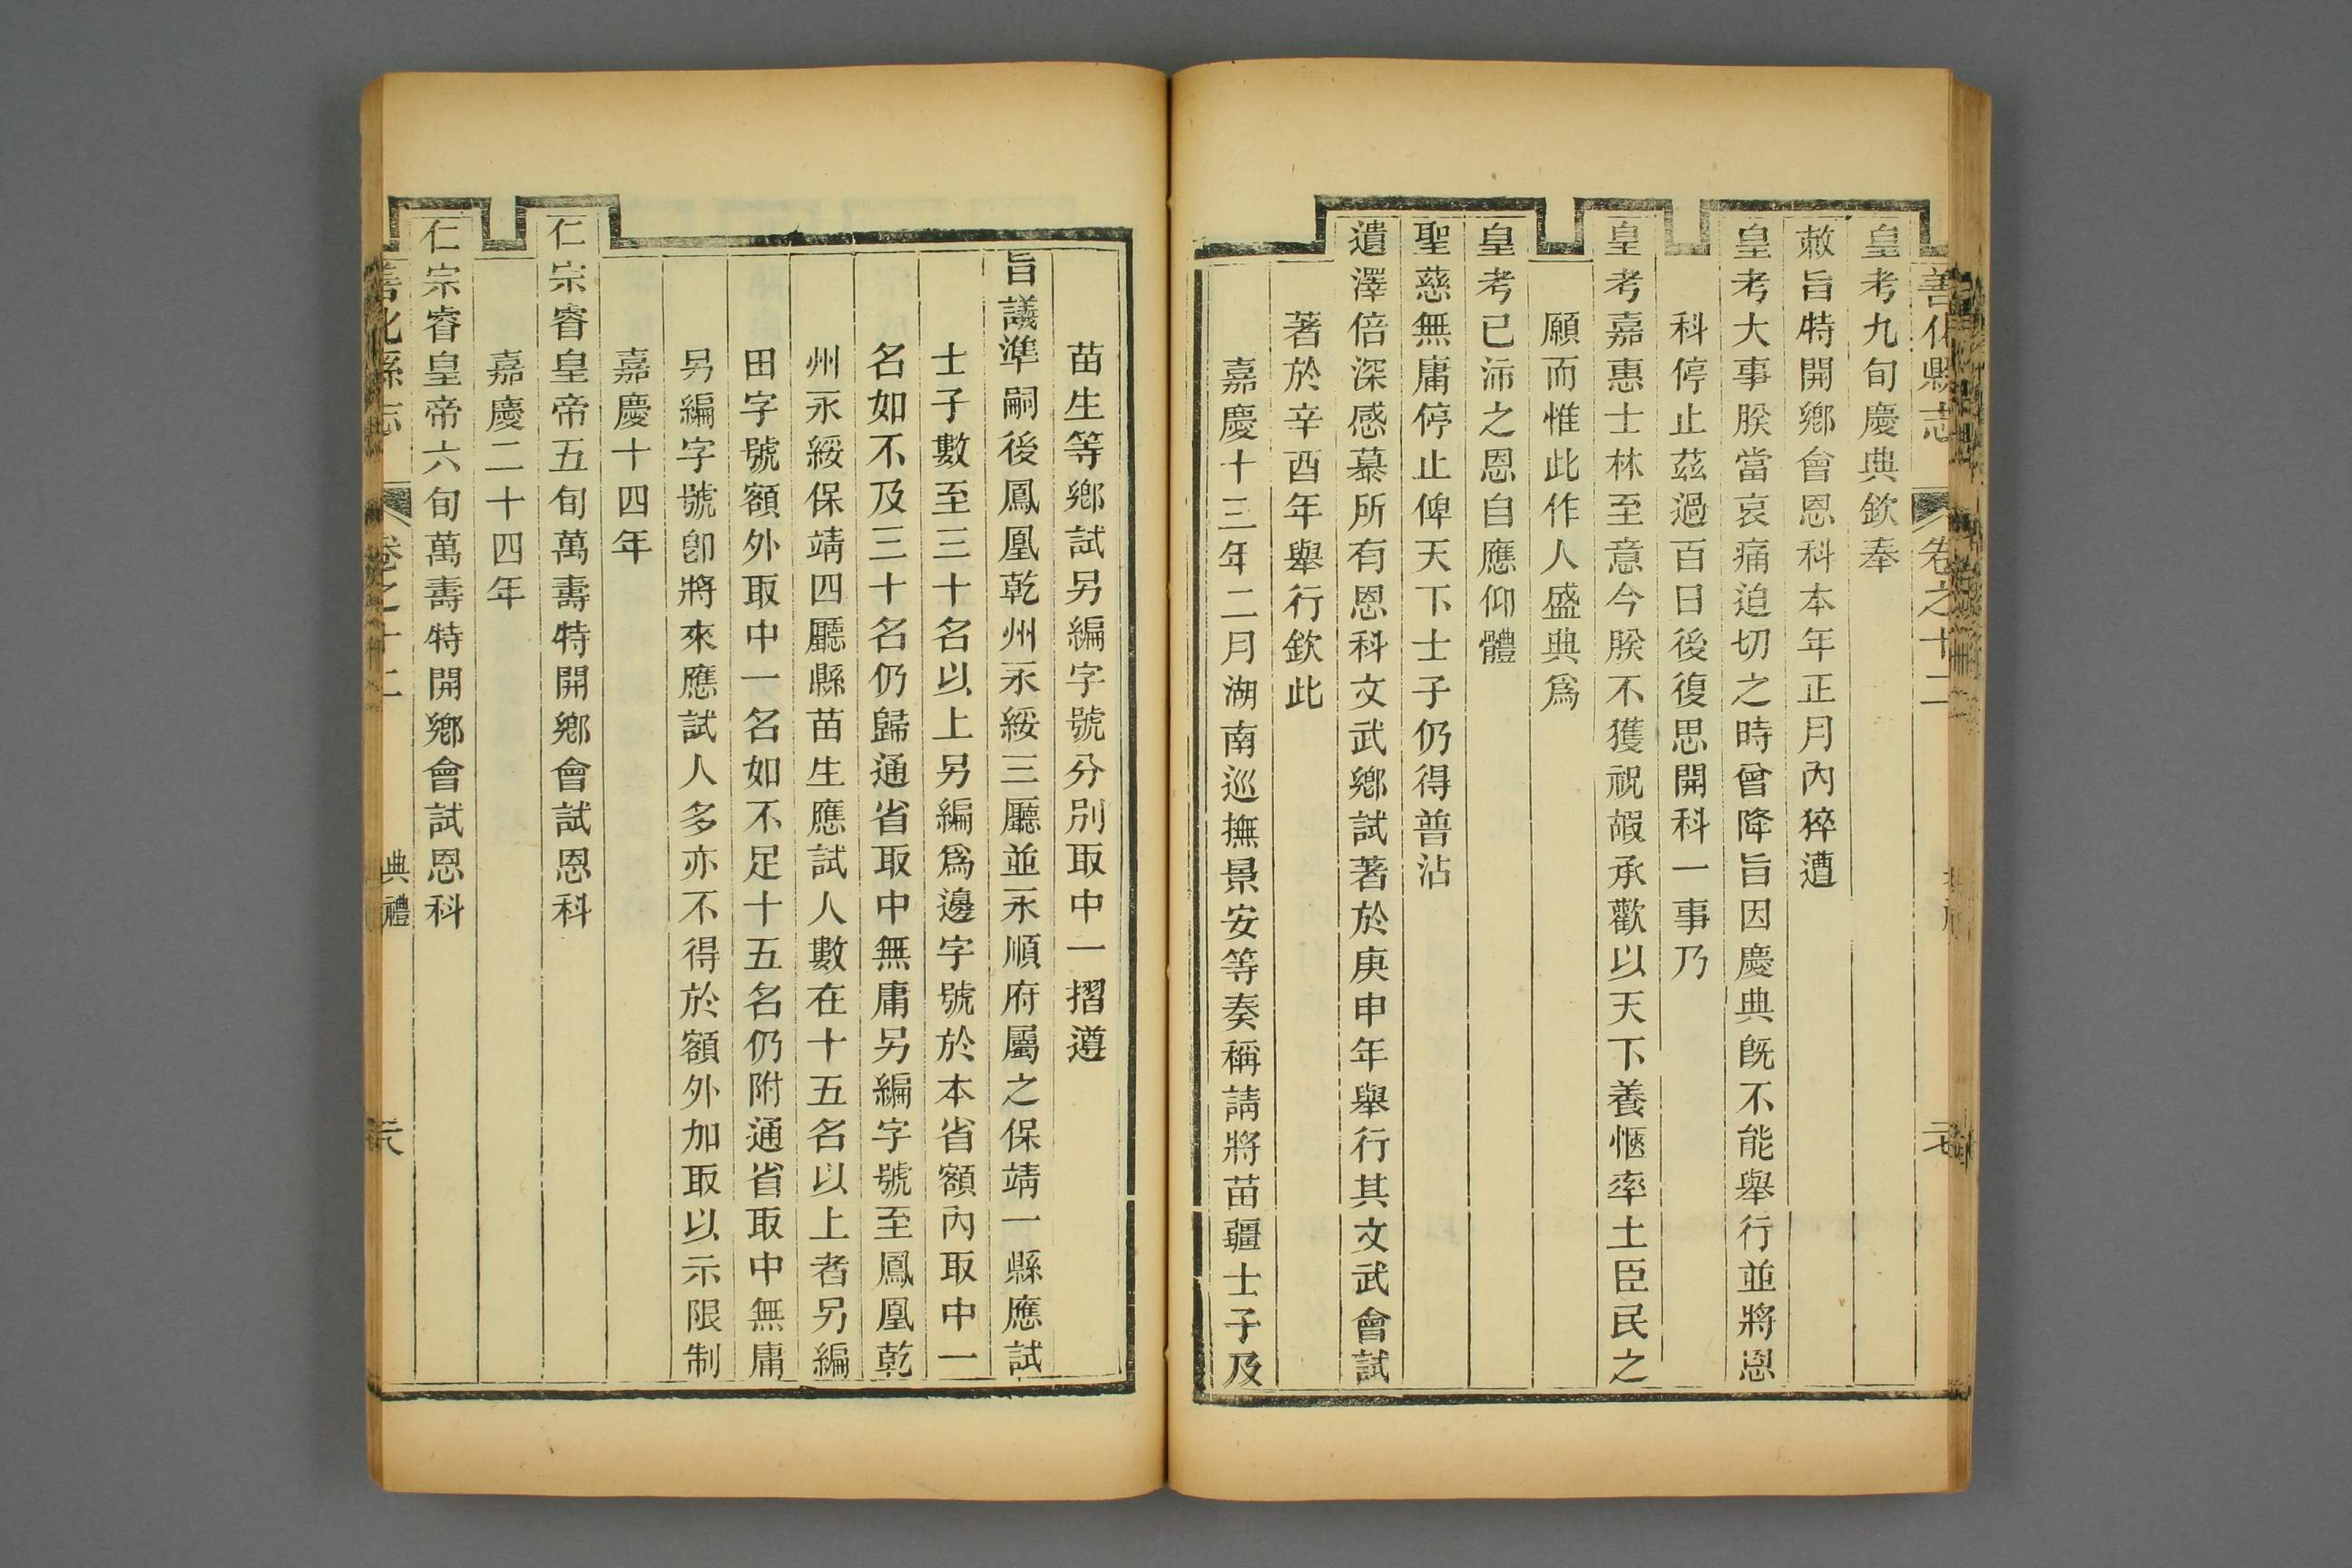 善化縣志 卷之十二
皇考九旬慶典欽奉
敕旨特開鄉會恩科本年正月內猝遭
皇考大事朕當哀痛迫切之時曾降旨因慶典既不能舉行並將恩
科停止茲過百日後復思開科一事乃
皇考嘉惠士林至意今朕不獲祝嘏承歡以天下養愜率土臣民之
願而惟此作人盛典爲
皇考已沛之恩自應仰體
聖慈無庸停止俾天下士子仍得普沾
遺澤倍深感慕所有恩科文武鄉試著於庚申年舉行其文武會試
著於辛酉年舉行欽此
嘉慶十三年二月湖南巡撫景安等奏稱請將苗疆士子及
苗生等鄉試另編字號分別取中一摺遵
旨議準嗣後鳳凰乾州永綏三廳並永順府屬之保靖一縣應試
士子數至三十名以上另編爲邊字號於本省額內取中一
名如不及三十名仍歸通省取中無庸另編字號至鳳凰乾
州永綏保靖四廳縣苗生應試人數在十五名以上者另編
田字號額外取中一名如不足十五名仍附通省取中無庸
另編字號卽將來應試人多亦不得於額外加取以示限制
嘉慶十四年
仁宗睿皇帝五旬萬壽特開鄉會試恩科
嘉慶二十四年
仁宗睿皇帝六旬萬壽特開鄉會試恩科
善化縣志 卷之十二 典禮